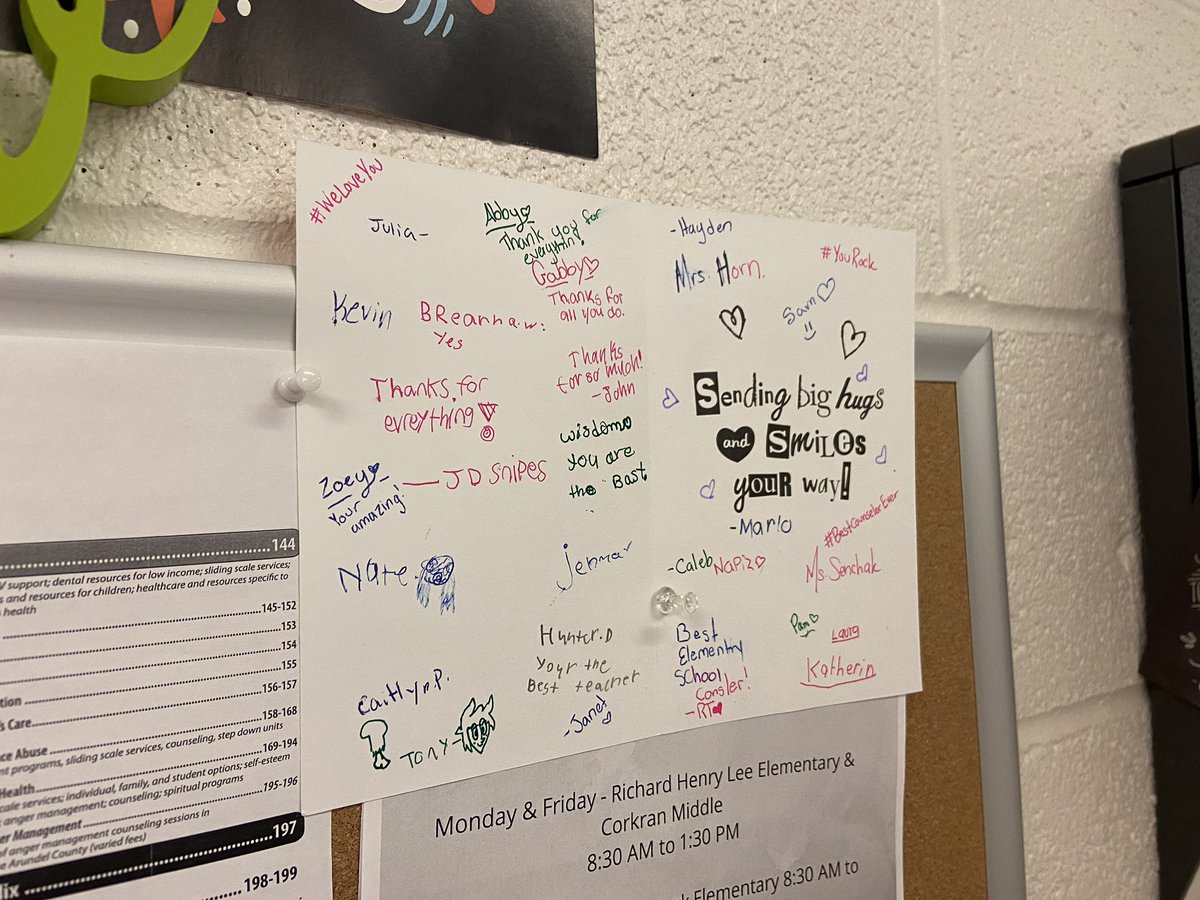 #WeLoveYou
Julia-
Abby
Thank you for
everythin!
Gabby
Thanks for
all you do.
Kevin
BReanna.w:
Yes
Thanks
for so much!
-John
Thanks for
evreything!
wisdom
you are
the Bast
Zoey
Your
amazing!
JD Snipes
Nate.
Jenna
Hunter.D
Your the
Best teacher
-Janet
Caitlyn P.
Tony-
-Hayden
Mrs. Horn.
#YouRock
Sam
Sending big hugs
and SmiLes
youR way!
-Marlo
#BestCounselorEver
-Caleb
Napiz
Ms. Senchak
Best
Elementry
School
Consler!
-RT
Pam
Laura
Katherin
144
V support; dental resources for low income; sliding scale services;
s and resources for children; healthcare and resources specific to
health
145-152
153
154
155
156-157
's Care
158-168
ce Abuse
nt programs, sliding scale services, counseling, step down units
169-194
Health
cale services; individual, family, and student options; self-esteem
; anger management; counseling; spiritual programs
195-196
er Management
of anger management counseling sessions in
e Arundel County (varied fees)
197
dix
198-199
Monday & Friday - Richard Henry Lee Elementary &
Corkran Middle
8:30 AM to 1:30 PM
Elementary 8:30 AM to